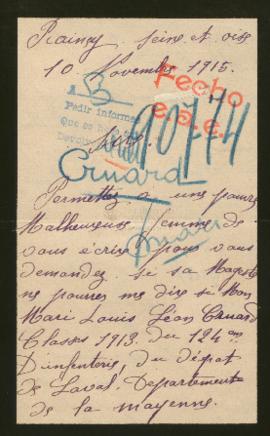 Raincy Seine et oise
10 Novembre 1915.
Fecho
A B
Pedir informes
Que se
Devol
10744
Cruard
Permettez a une pauvre
Malheureuse femme de
vous écrire pour vous
demandez si sa Majesté
ne pourrez me dire si Mon
Mari Louis Léon Cruard
Classes 1913. du 124 em
D'infenterie, du dépôt
de Laval. Departement
de la mayenne.